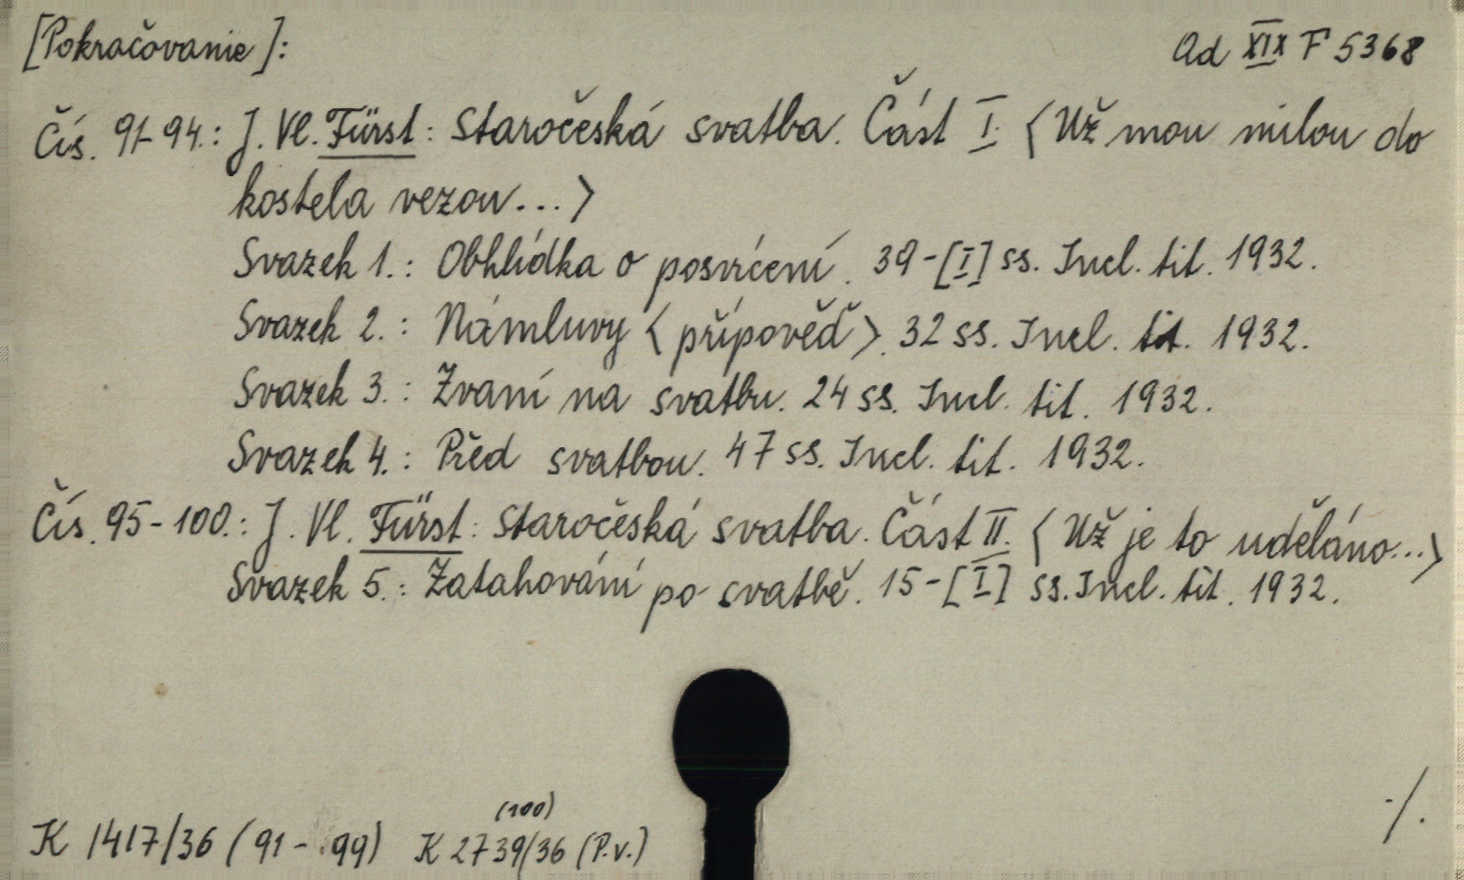 [Pokračovanie]:
Ad XIX F 5368
Čís. 91-94.: J. Vl. Fürst: Staročeská svatba. Část I. <Už mou milou do
kostela vezou...>
Svazek 1.: Obhlídka o posvícení. 39-[I] ss. Incl. tit. 1932.
Svazek 2.: Námluvy <přípověď>. 32 ss. Incl. tit. 1932.
Svazek 3.: Zvaní na svatbu. 24 ss. Incl. tit. 1932.
Svazek 4.: Před svatbou. 47 ss. Incl. tit. 1932.
Čís. 95-100.: J. Vl. Fürst: Staročeská svatba. Část II. <Už je to uděláno...>
Svazek 5.: Zatahování po svatbě. 15-[I] ss. Incl. tit. 1932.
(100)
K 1417/36 (91-99) K 2739/36 (P.v.)
·/.